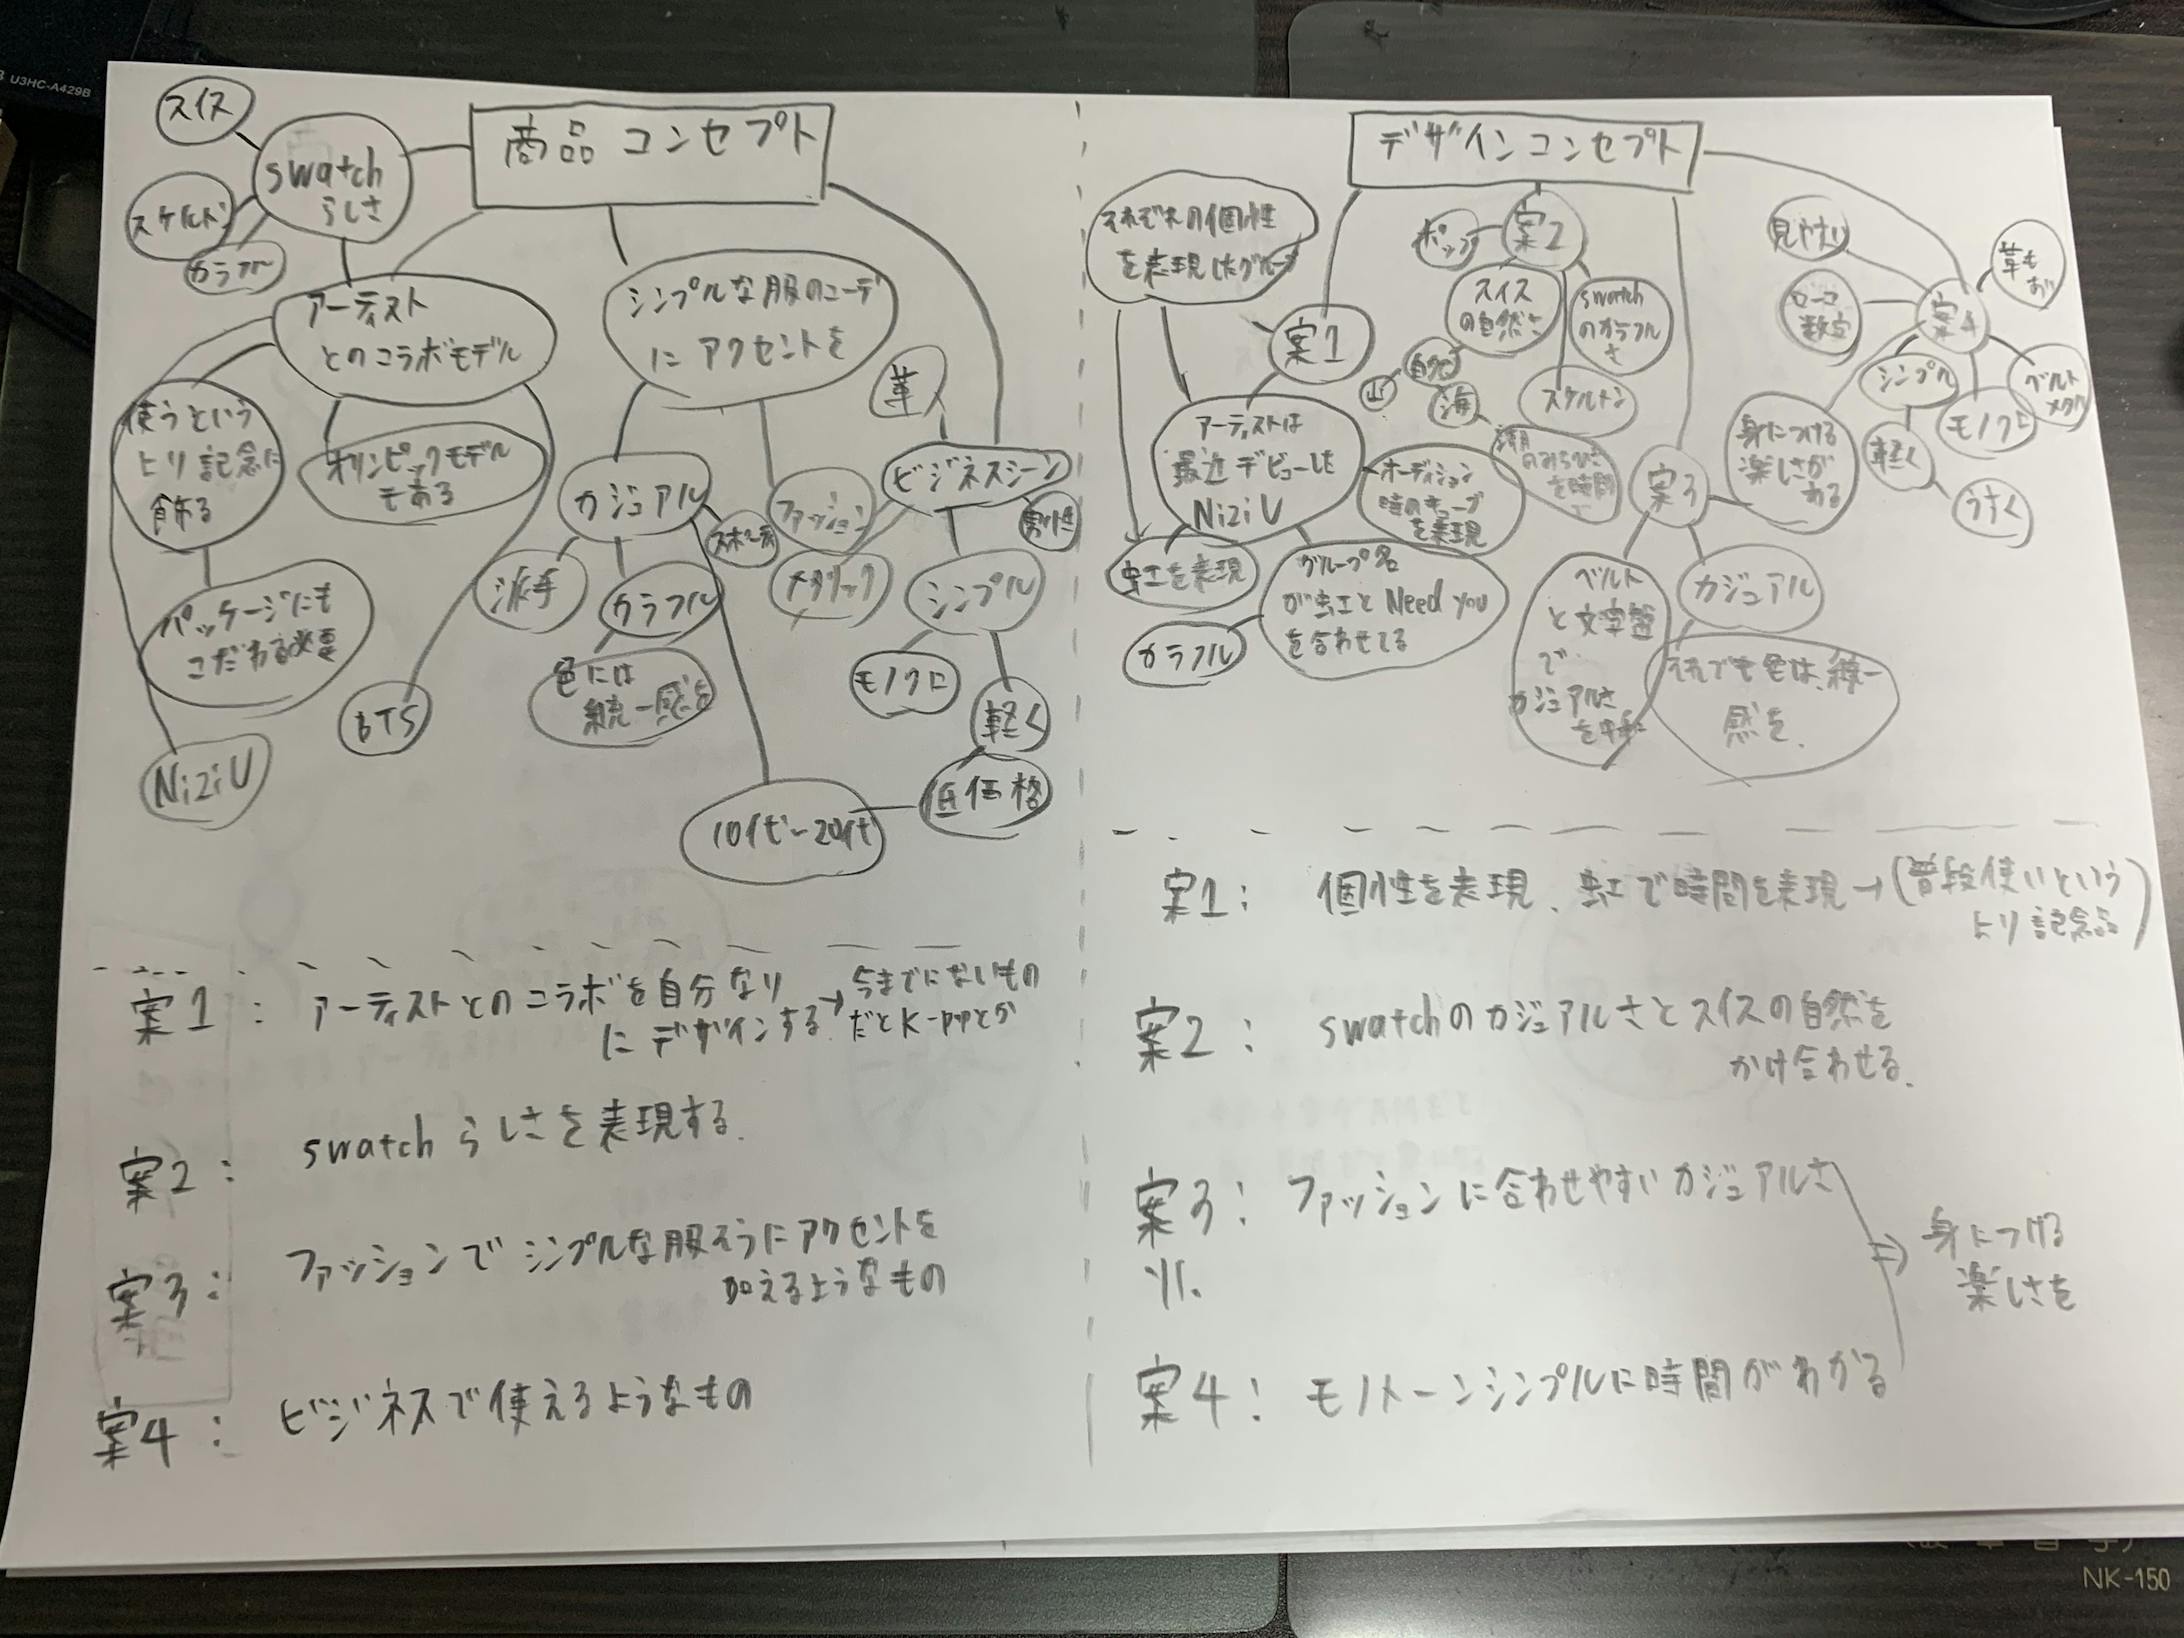 U3HC-A429B
商品コンセプト
スイス
swatch
らしさ
スケルトン
カラフル
アーティスト
とのコラボモデル
シンプルな服のコーデ
にアクセントを
使うという
より記念に
飾る
オリンピックモデル
もある
カジュアル
スポーティ
ファッション
革
ビジネスシーン
男性
メタリック
シンプル
派手
カラフル
色には
統一感を
モノクロ
軽く
低価格
10代~20代
パッケージにも
こだわる必要
BTS
NiziU
案1: アーティストとのコラボを自分なり
にデザインする→今までにないもの
だとK-popとか
案2: swatchらしさを表現する.
案3: ファッションでシンプルな服そうにアクセントを
加えるようなもの
案4: ビジネスで使えるようなもの
デザインコンセプト
それぞれの個性
を表現したグループ
案1
アーティストは
最近デビューした
NiziU
オーディション
時のキューブ
を表現
虹を表現
グループ名
が虹とNeed you
を合わせてる
カラフル
案2
ポップ
スイス
の自然さ
swatch
のカラフル
さ
自然
山
海
スケルトン
を時間
案3
身につける
楽しさが
ある
ベルト
と文字盤
で
カジュアルさ
を
カジュアル
それでも色は、統一
感を、
案4
見やすい
ローマ
数字
革も
あり
シンプル
モノクロ
ベルト
メタル
軽く
うすく
案1: 個性を表現、虹で時間を表現→(普段使いという
より記念品)
案2: swatchのカジュアルさとスイスの自然を
かけ合わせる.
案3: ファッションに合わせやすいカジュアルさ
⇒ 身につける
楽しさを
案4: モノトーンシンプルに時間がわかる
NK-150